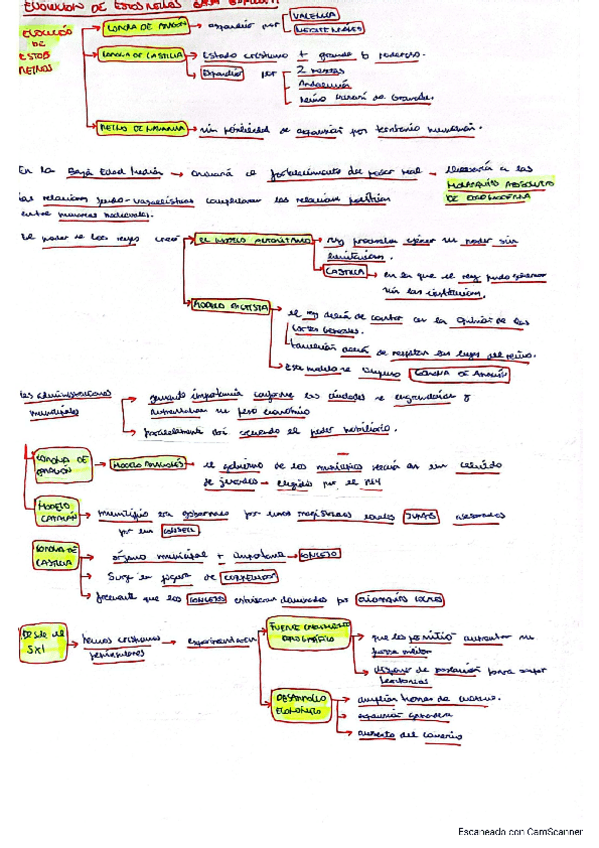 EVOLUCIÓN DE ESTOS REINOS
EVOLUCIÓN DE ESTOS REINOS
CORONA DE ARAGÓN → expansión por
VALENCIA
MEDITERRÁNEO
CORONA DE CASTILLA → Estado cristiano + grande y poderoso.
Expansión por
2 mesetas
Andalucía
Reino Nazarí de Granada.
REINO DE NAVARRA → sin posibilidad de expansión por territorio musulmán.
En la Baja Edad Media → el fortalecimiento del poder real →
MONARQUÍAS ABSOLUTAS DE EDAD MODERNA
las relaciones feudo-vasalláticas las relaciones políticas
entre
El poder de los reyes
EL MODELO AUTORITARIO → rey ejercer su poder sin
limitaciones.
CASTILLA → en la que el rey pudo gobernar
sin las instituciones.
MODELO PACTISTA
el rey de contar con la opinión de las
Cortes Generales.
también de respetar las leyes del reino.
Este modelo se impuso CORONA DE ARAGÓN
Las administraciones
municipales
importancia conforme las ciudades se y
su peso económico
paralelamente el poder nobiliario.
CORONA DE ARAGÓN → MODELO ARAGONÉS → el gobierno de los municipios en un cabildo
de jurados → elegido por el REY
MODELO CATALÁN → municipio era gobernado por unos magistrados
por un CONSELL
CORONA DE CASTILLA
órgano municipal + importante → CONCEJO
Surge la figura de CORREGIDOR
frecuente que los CONCEJO estuviesen dominados por OLIGARQUÍAS LOCALES
DESDE EL S.XI → reinos cristianos
peninsulares → experimentaron
FUERTE CRECIMIENTO DEMOGRÁFICO
que les permitió aumentar su
fuerza militar
disponer de población para
territorios
DESARROLLO ECONÓMICO
ampliar
expansión ganadera
aumento del comercio
Escaneado con CamScanner